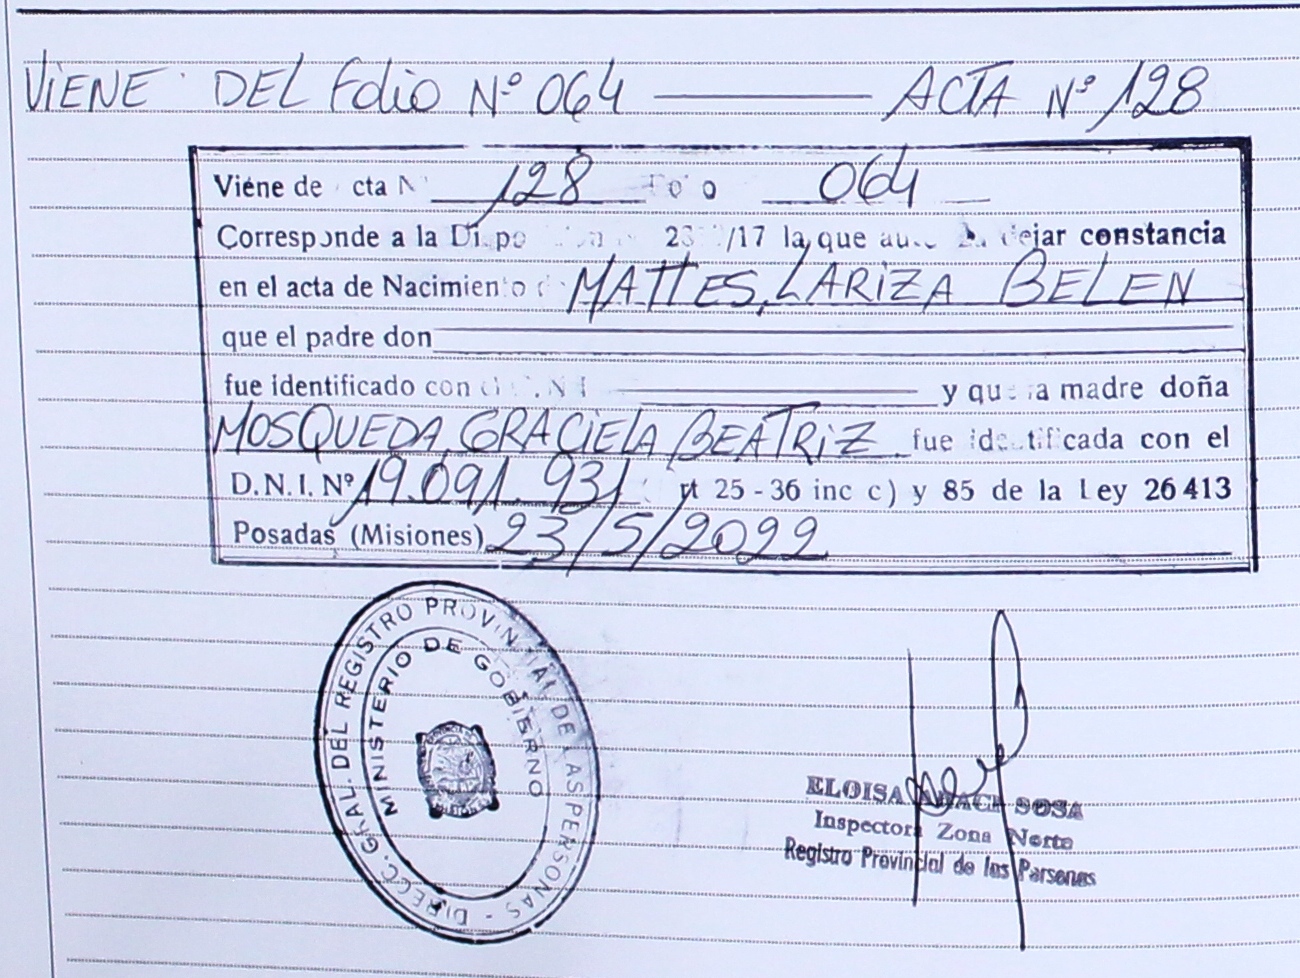 VIENE DEL FOLIO Nº 064 ——— ACTA Nº 128
Viene de cta N 128 Folio 064
Corresponde a la /17 la que dejar constancia
en el acta de Nacimiento MATTES, LARIZA BELEN
que el padre don
fue identificado con y que la madre doña
MOSQUEDA, GRACIELA BEATRIZ. fue identificada con el
D.N.I. Nº 19.091.931 rt 25 - 36 inc c) y 85 de la Ley 26413
Posadas (Misiones) 23/5/2022
DIRECC. GRAL. DEL REGISTRO PROVINCIAL DE LAS PERSONAS -
MINISTERIO DE GOBIERNO
ELOISA SOSA
Inspectora Zona Norte
Registro Provincial de las Personas